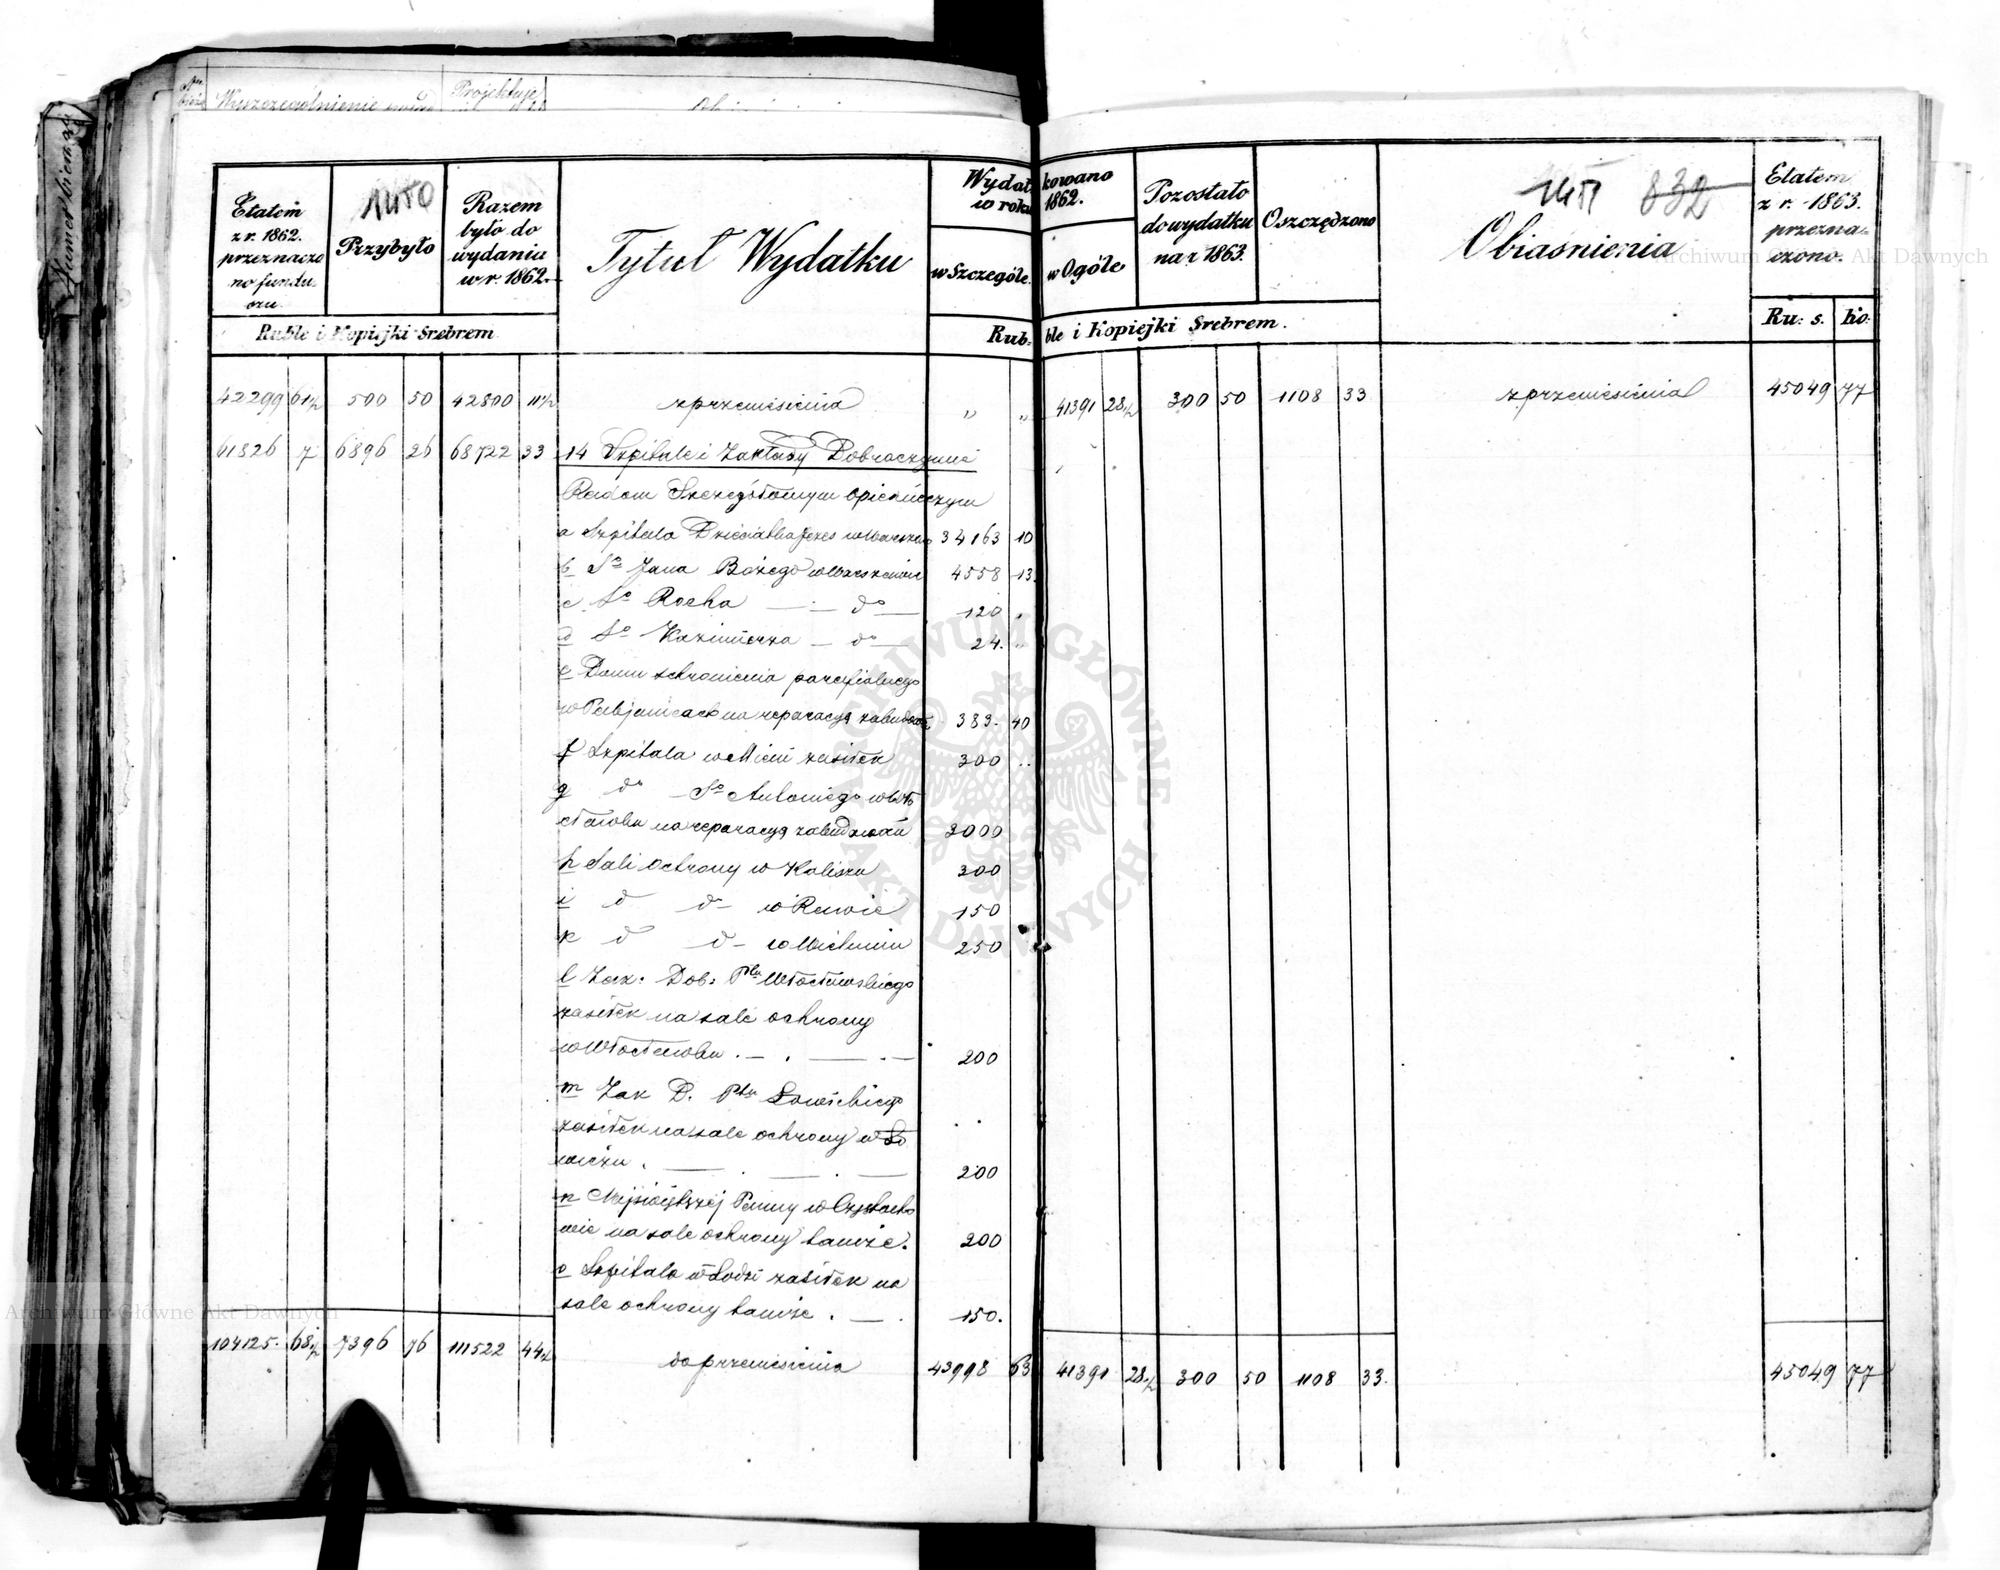 Wyszczególnienie
Projektuje
Numer bieżący
1450
Etatem
z r. 1862.
przeznaczo
no fundu-
szu.
Przybyło
Razem
było do
wydania
w r. 1862.
Tytuł Wydatku
Wydatkowano
w roku 1862.
w Szczególe
w Ogóle
Pozostało
do wydatku
na r. 1863.
Oszczędzono
1451 832
Obiaśnienia
Etatem
z r. 1863.
przezna-
czono.
Ruble i Kopiejki Srebrem
Ruble i Kopiejki Srebrem.
Ru: s. ko:
42299 61½ 500 50 42800 11½ z przeniesienia „ „ 41391 28½ 300 50 1108 33 z przeniesienia 45049 77
61826 7 6896 26 68722 33 14 Szpitale i Zakłady Dobroczynne
Radom Szczegółowym Opiekuńczym
a Szpitala Dzieciątka Jezus w Warszaw 34163 10
b So Jana Bożego w Warszawie 4558 13
c So Rocha — do — 120 „
d So Kazimierza — do — 24. „
e Domu schronienia parafialnego
w Pabjanicach na reparacyą zabudow 383. 40
f Szpitala w Mieni zasiłek 300 ..
g do So Antoniego w Wło
cławku na reparacyą zabudowań 3000
h Sali Ochrony w Kaliszu 300
i do do w Rawie 150
k do do w Wieluniu 250
l Zak: Dob: Ptu Włocławskiego
zasiłek na salę ochrony
w Włocławku . — . — . — 200
m Zak D. Ptu Łowickiego
zasiłek na salę ochrony w Ło
wiczu . — . — . — 200
n Najświętszej Panny w Częstocho
wie na salę ochrony tamże. 200
o Szpitala w Łodzi zasiłek na
salę ochrony tamże . — . 150.
104125. 68½ 7396 76 111522 44½ do przeniesienia 43998 63 41391 28½ 300 50 1108 33. 45049 77
Archiwum Główne Akt Dawnych
Archiwum Główne Akt Dawnych
ARCHIWUM GŁÓWNE AKT DAWNYCH